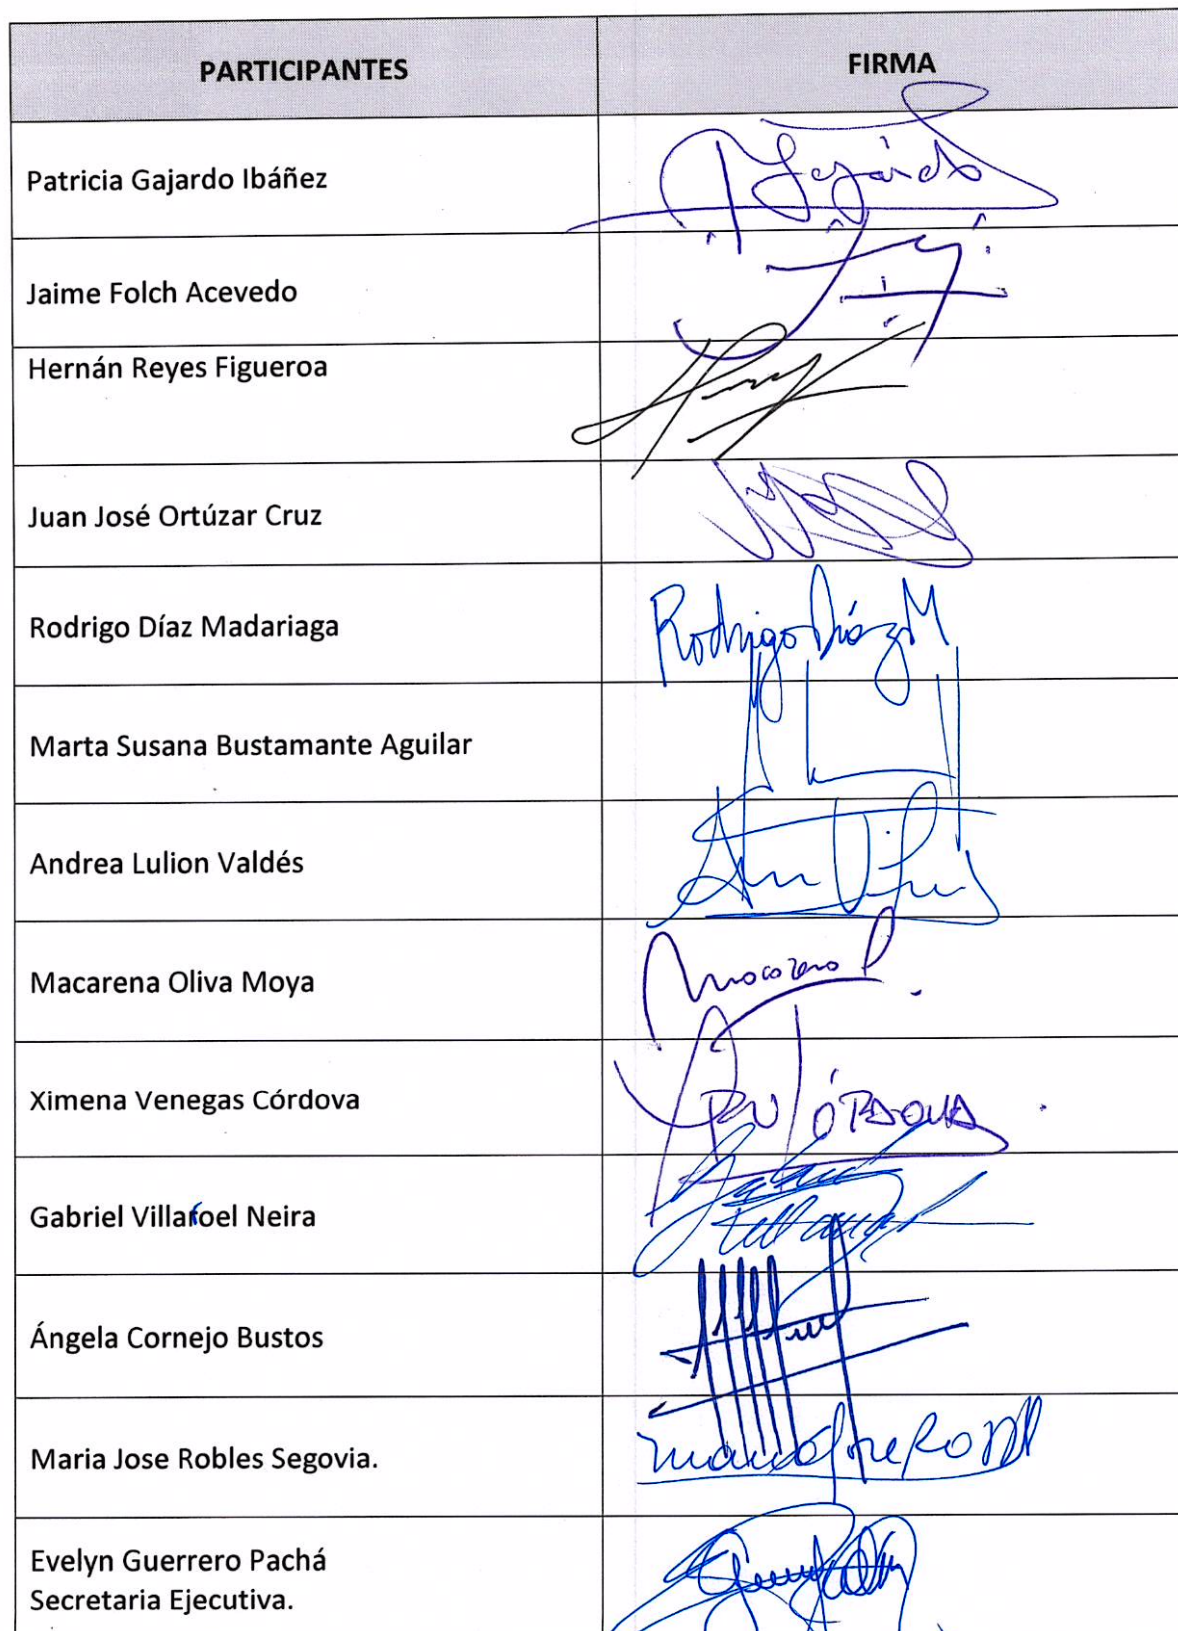 PARTICIPANTES FIRMA
Patricia Gajardo Ibáñez Gajardo
Jaime Folch Acevedo
Hernán Reyes Figueroa
Juan José Ortúzar Cruz
Rodrigo Díaz Madariaga Rodrigo Díaz M
Marta Susana Bustamante Aguilar
Andrea Lulion Valdés
Macarena Oliva Moya Macarena
Ximena Venegas Córdova
Gabriel Villaroel Neira
Ángela Cornejo Bustos
Maria Jose Robles Segovia.
Evelyn Guerrero Pachá
Secretaria Ejecutiva.